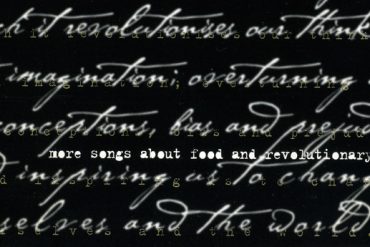 ch it revolutionises our think
imagination; overturning
conceptions, bias and preju
more songs about food and revolutionary
d inspiring us to chang
selves and the world